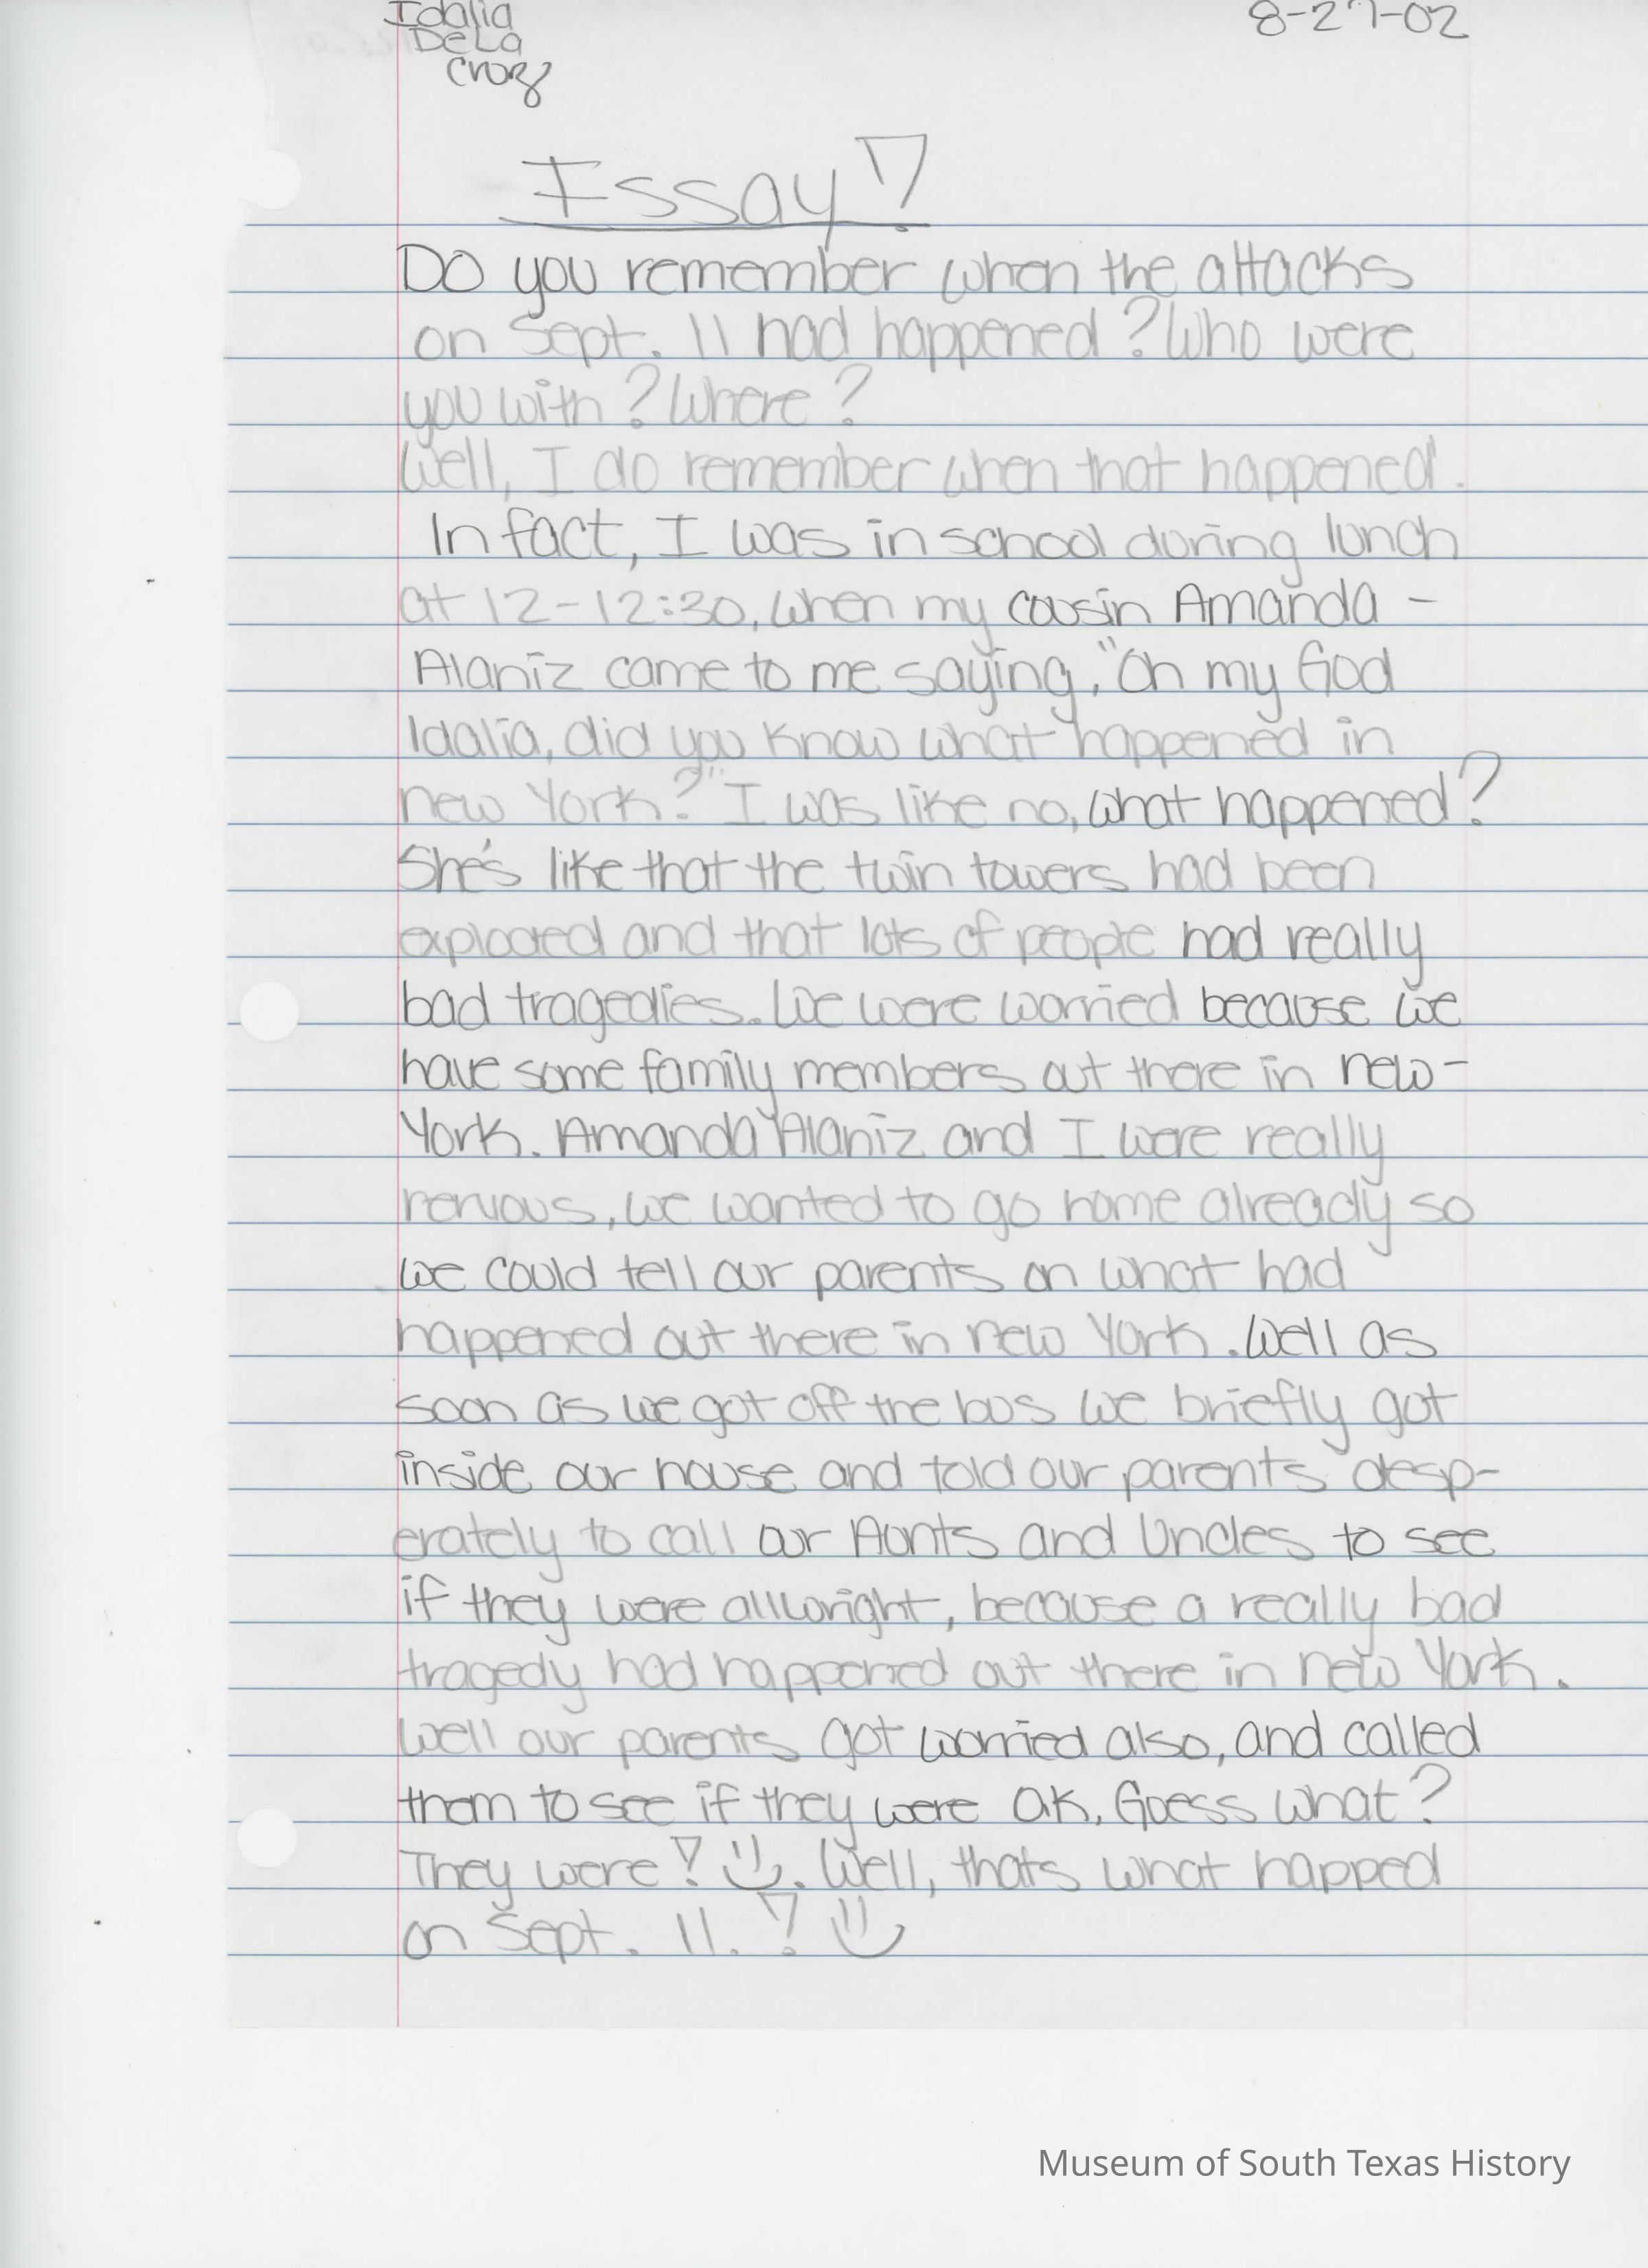 Idalia
De La
Cruz
8-27-02
Essay!
Do you remember when the attacks
on Sept. 11 had happened? Who were
you with? Where?
Well, I do remember when that happened.
In fact, I was in school during lunch
at 12-12:30, when my cousin Amanda -
Alaniz came to me saying, "Oh my God
Idalia, did you know what happened in
new York?" I was like no, what happened?
She's like that the twin towers had been
exploded and that lots of people had really
bad tragedies. We were worried because we
have some family members out there in new-
York. Amanda Alaniz and I were really
nervous, we wanted to go home already so
we could tell our parents on what had
happened out there in new York. Well as
soon as we got off the bus we briefly got
inside our house and told our parents desp-
erately to call our Aunts and Uncles to see
if they were allwright, because a really bad
tragedy had happened out there in new York.
Well our parents got worried also, and called
them to see if they were O.K. Guess what?
They were! . Well, thats what happed
on Sept. 11. !
Museum of South Texas History